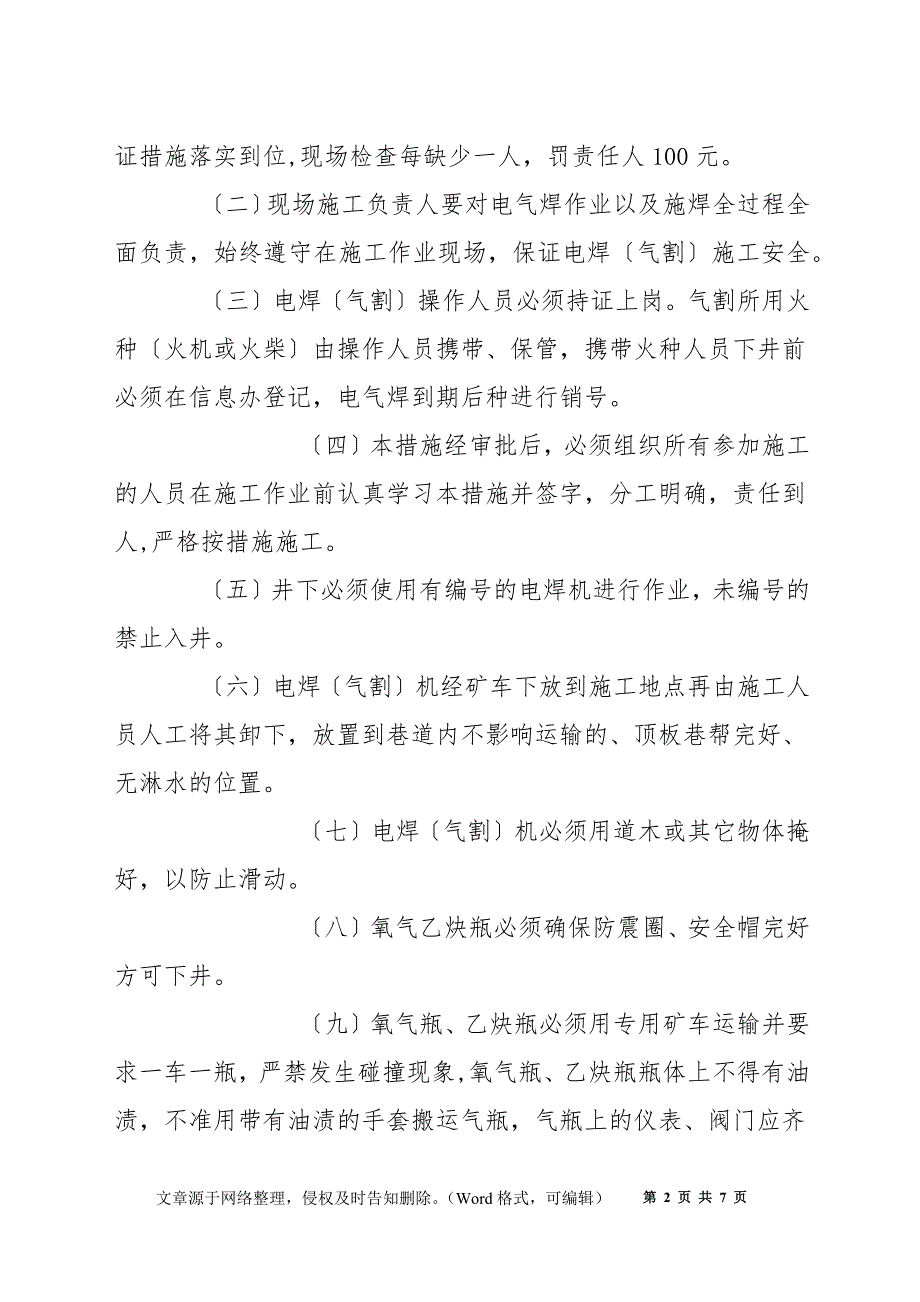 证措施落实到位,现场检查每缺少一人，罚责任人 100 元。
〔二〕现场施工负责人要对电气焊作业以及施焊全过程全
面负责，始终遵守在施工作业现场，保证电焊〔气割〕施工安全。
〔三〕电焊〔气割〕操作人员必须持证上岗。气割所用火
种〔火机或火柴〕由操作人员携带、保管，携带火种人员下井前
必须在信息办登记，电气焊到期后种进行销号。
〔四〕本措施经审批后，必须组织所有参加施工
的人员在施工作业前认真学习本措施并签字，分工明确，责任到
人,严格按措施施工。
〔五〕井下必须使用有编号的电焊机进行作业，未编号的
禁止入井。
〔六〕电焊〔气割〕机经矿车下放到施工地点再由施工人
员人工将其卸下，放置到巷道内不影响运输的、顶板巷帮完好、
无淋水的位置。
〔七〕电焊〔气割〕机必须用道木或其它物体掩
好，以防止滑动。
〔八〕氧气乙炔瓶必须确保防震圈、安全帽完好
方可下井。
〔九〕氧气瓶、乙炔瓶必须用专用矿车运输并要
求一车一瓶，严禁发生碰撞现象,氧气瓶、乙炔瓶瓶体上不得有油
渍，不准用带有油渍的手套搬运气瓶，气瓶上的仪表、阀门应齐
文章源于网络整理，侵权及时告知删除。（Word 格式，可编辑） 第 2 页 共 7 页